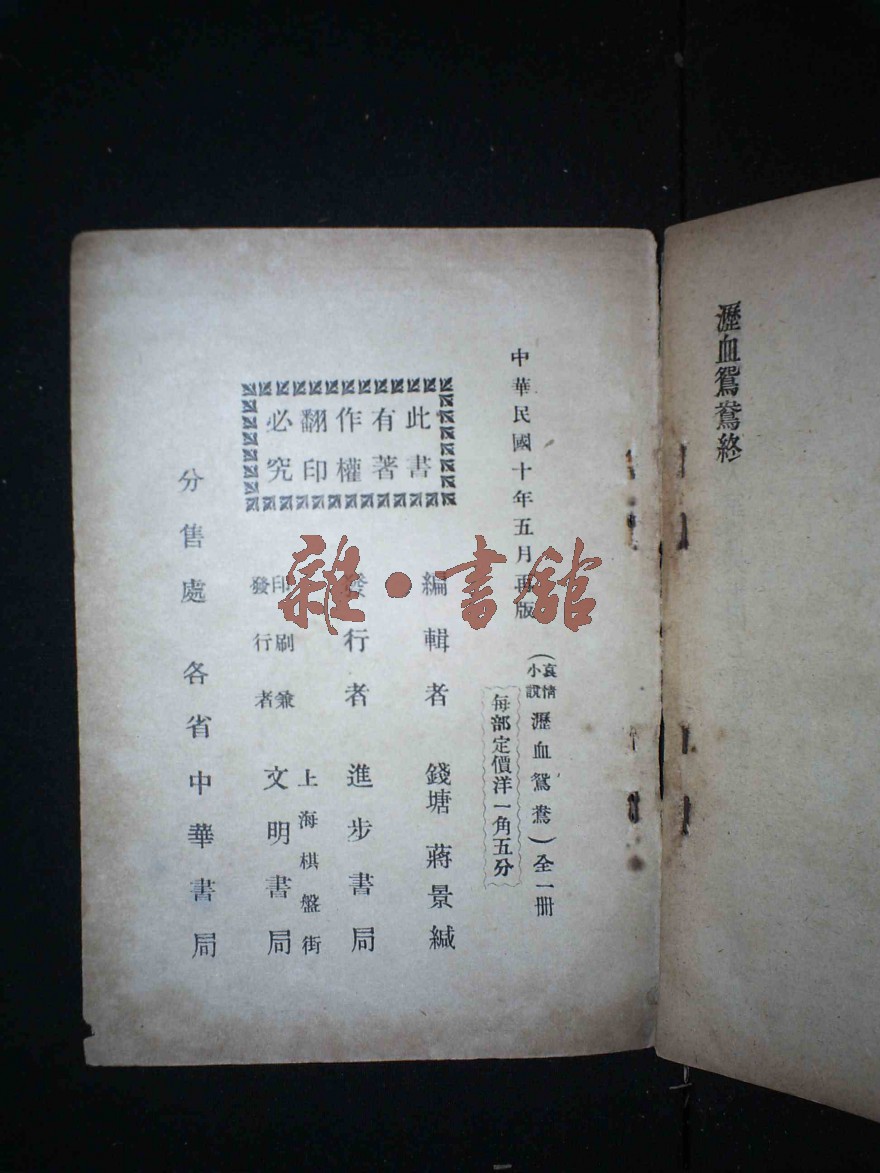 瀝血鴛鴦終
中華民國十年五月再版
(哀情小說瀝血鴛鴦)全一冊
每部定價洋一角五分
此書
有著
作權
翻印
必究
編輯者 錢塘蔣景緘
發行者 進步書局
印刷兼發行者 上海棋盤街文明書局
分售處 各省中華書局
雜·書館